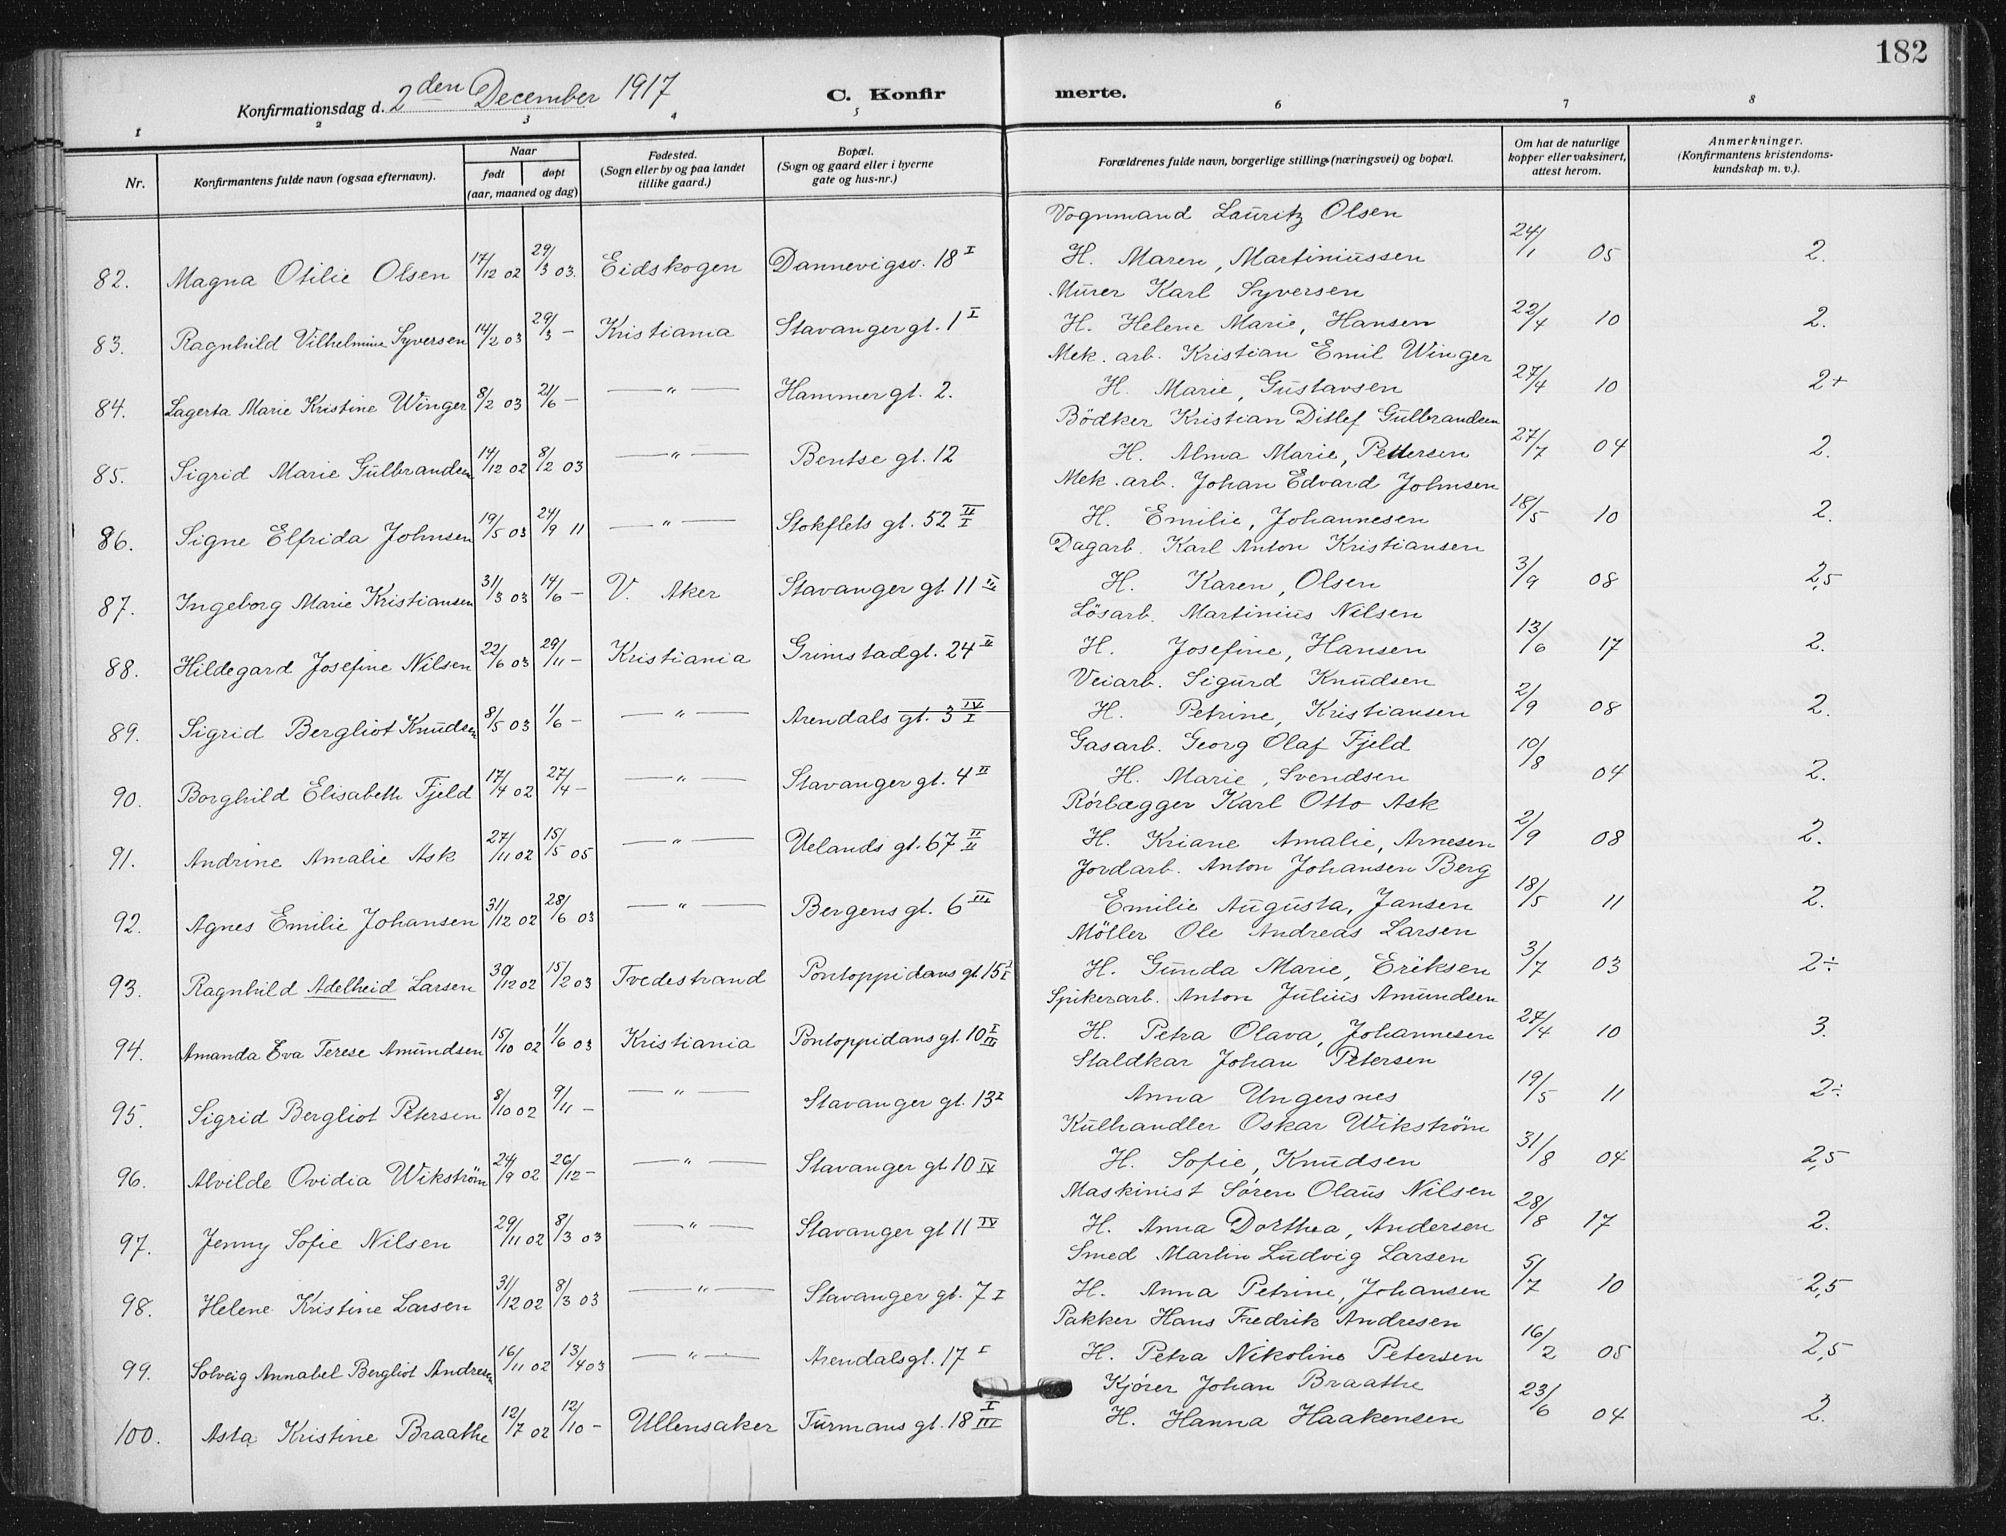 182
Konfirmationsdag d. 2den December 1917 C. Konfirmerte.
1 2 3 4 5 6 7 8
Nr. Konfirmantens fulde navn (ogsaa efternavn). Naar født døpt (aar, maaned og dag) Fødested. (Sogn eller by og paa landet tillike gaard.) Bopæl. (Sogn og gaard eller i byerne gate og hus-nr.) Forældrenes fulde navn, borgerlige stilling (næringsvei) og bopæl. Om hat de naturlige kopper eller vaksinert, attest herom. Anmerkninger. (Konfirmantens kristendoms-kundskap m. v.).
Vognmand Lauritz Olsen
82. Magna Otilie Olsen 17/12 02 29/3 03. Eidskogen Dannevigsv. 18 I H. Maren, Martiniussen 24/1 05 2.
Murer Karl Syversen
83. Ragnhild Vilhelmine Syversen 14/2 03 29/3 — Kristiania Stavanger gt. 1 I H. Helene Marie, Hansen 22/4 10 2.
Mek. arb. Kristian Emil Winger
84. Lagerta Marie Kristine Winger 8/2 03 21/6 — — " — Hammer gt. 2. H. Marie, Gustavsen 27/4 10 2+
Bödker Kristian Ditlef Gulbrandsen
85. Sigrid Marie Gulbrandsen 14/12 02 8/2 03 — " — Bentse gt. 12 H. Alma Marie, Pettersen 27/7 04 2.
Mek. arb. Johan Edvard Johnsen
86. Signe Elfrida Johnsen 19/5 03 24/9 11 — " — Stokflets gt. 52 II/I H. Emilie, Johannesen 18/5 10 2.
Dagarb. Karl Anton Kristiansen
87. Ingeborg Marie Kristiansen 31/3 03 14/6 — V. Aker Stavanger gt 11 H. Karen, Olsen 3/9 08 2,5
Lösarb. Martinius Nilsen
88. Hildegard Josefine Nilsen 22/6 03 29/11 — Kristiania Grimstadgt. 24 H. Josefine, Hansen 13/6 17 2.
Veiarb. Sigurd Knudsen
89. Sigrid Bergliot Knudsen 8/5 03 1/6 — — " — Arendals gt. 3 IV/I H. Petrine, Kristiansen 2/9 08 2.
Gasarb. Georg Olaf Fjeld
90. Borghild Elisabeth Fjeld 17/4 02 27/4 — — " — Stavanger gt. 4 II H. Marie, Svendsen 10/8 04 2.
Rörlægger Karl Otto Ask
91. Andrine Amalie Ask 27/11 02 15/5 05 — " — Uelands gt. 67 II/II H. Kriane Amalie, Arnesen 2/9 08 2.
Jordarb. Anton Johansen Berg
92. Agnes Emilie Johansen 31/12 02 28/6 03 — " — Bergens gt. 6 III Emilie Augusta, Jansen 18/5 11 2.
Möller Ole Andreas Larsen
93. Ragnhild Adelheid Larsen 30/12 02 15/2 03 Tvedestrand Pontoppidans gt 15 I/I H. Gunda Marie, Eriksen 3/7 03 2÷
Spikerarb. Anton Julius Amundsen
94. Amanda Eva Terese Amundsen 15/10 02 1/6 03 Kristiania Pontoppidans gt. 10 I/III H. Petra Olava, Johannesen 27/4 10 3.
Staldkar Johan Petersen
95. Sigrid Bergliot Petersen 8/10 02 9/11 — — " — Stavanger gt. 13 I Anna Ungersnes 19/5 11 2÷
Kulhandler Oskar Wikström
96. Alvilde Ovidia Wikström 24/9 02 26/12 — — " — Stavanger gt. 10 IV H. Sofie, Knudsen 31/8 04 2,5
Maskinist Sören Olaus Nilsen
97. Jenny Sofie Nilsen 29/11 02 8/3 03 — " — Stavanger gt 11 IV H. Anna Dorthea, Andersen 28/8 17 2.
Smed Martin Ludvig Larsen
98. Helene Kristine Larsen 31/12 02 8/3 03 — " — Stavanger gt. 7 I H. Anna Petrine, Johansen 5/7 10 2,5
Pakker Hans Fredrik Andresen
99. Solveig Annabel Bergliot Andresen 16/11 02 13/4 03 — " — Arendalsgt. 17 I H. Petra Nikoline Petersen 16/2 05 2,5
Kjörer Johan Braathe
100. Asta Kristine Braathe 12/7 02 12/10 — Ullensaker Turmans gt. 18 I/III H. Hanna Haakensen 23/6 04 2.